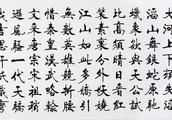 大河上下頓失滔
滔山舞銀蛇原馳
比高須晴日看紅
裝素裹分外妖嬈
江山如此多嬌引
無數英雄競折腰
惜秦皇漢武略輸
文采唐宗宋祖稍
遜風騷一代天驕